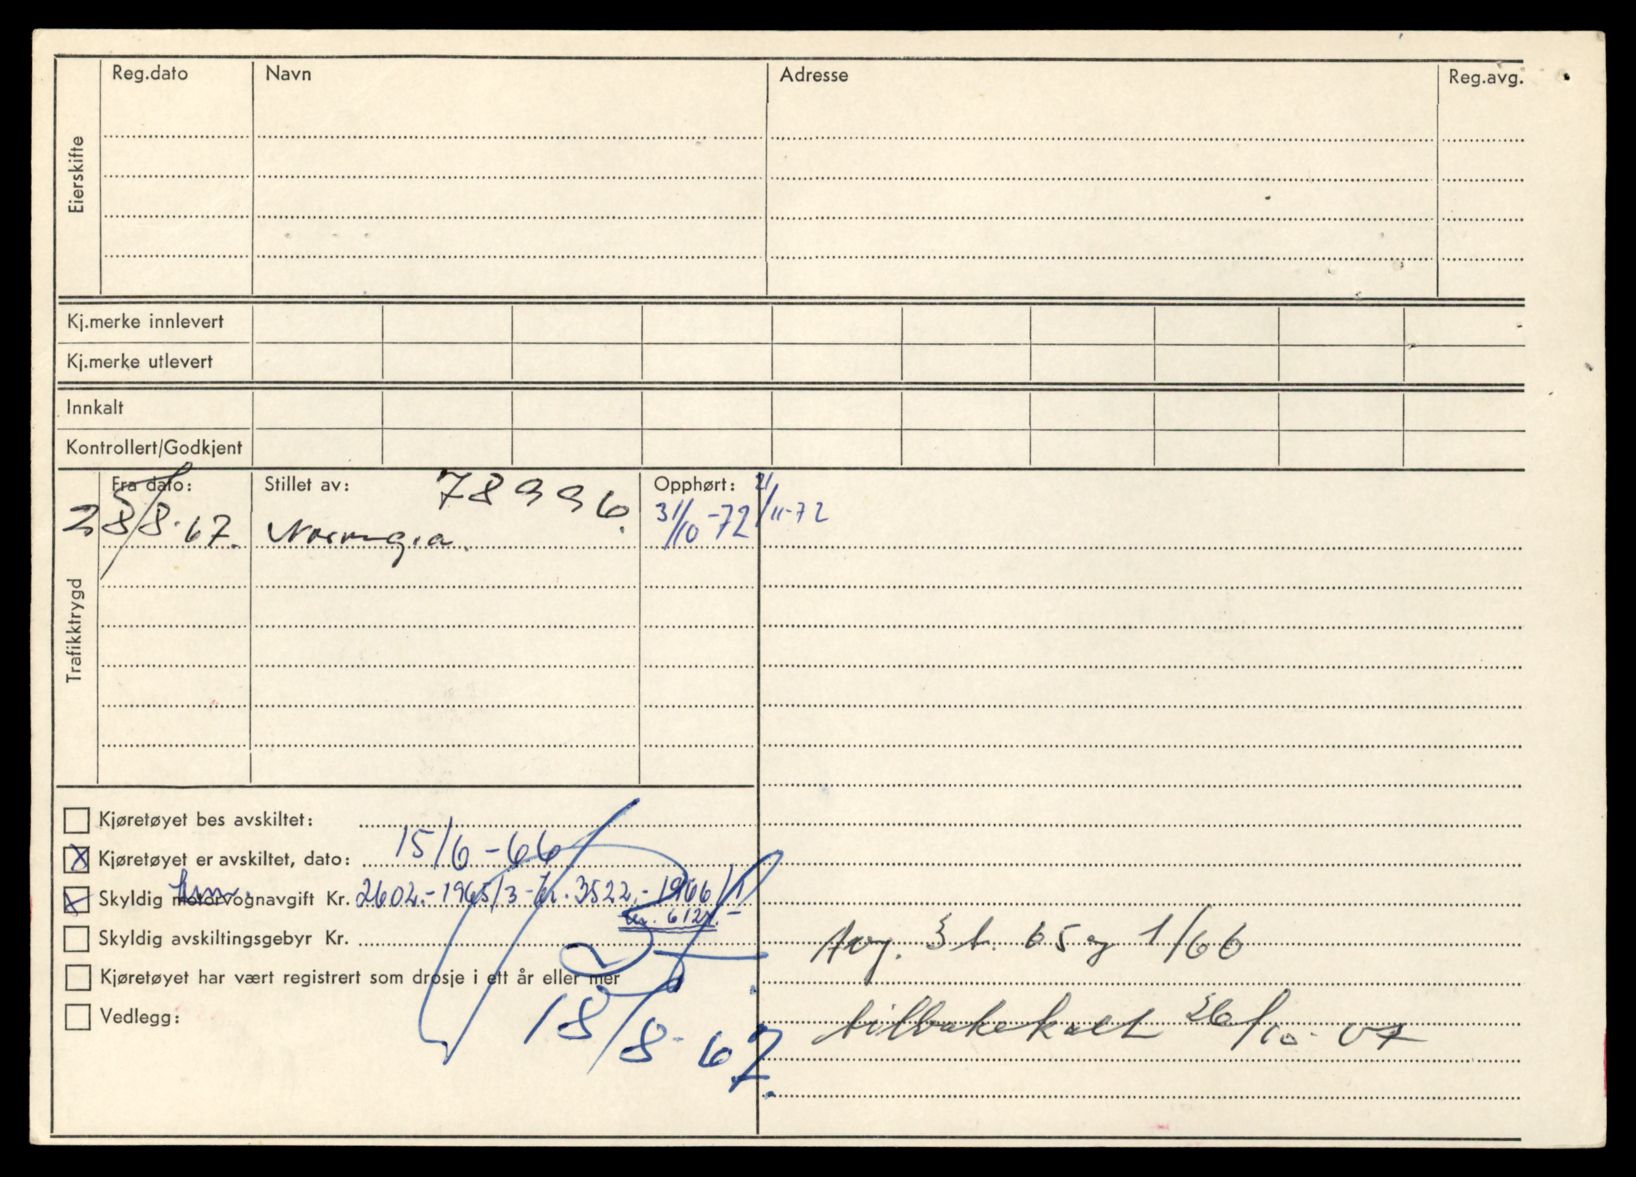 Reg.dato Navn Adresse Reg.avg.
Eierskifte
Kj.merke innlevert
Kj.merke utlevert
Innkalt
Kontrollert/Godkjent
Trafikktrygd
Fra dato: Stillet av: 78996. Opphørt:
28/8-67. Norvegia. 31/10-72 2/11-72
Kjøretøyet bes avskiltet:
X Kjøretøyet er avskiltet, dato: 15/6-66
X Skyldig motorvognavgift Kr. 2602.- 1965/3 - kr. 3522.- 1966/1
kr. 612.-
Skyldig avskiltingsgebyr Kr.
Kjøretøyet har vært registrert som drosje i ett år eller mer
Vedlegg:
18/8-67.
Avg. 3 t. 65 og 1/66
tilbakekalt 26/10-67